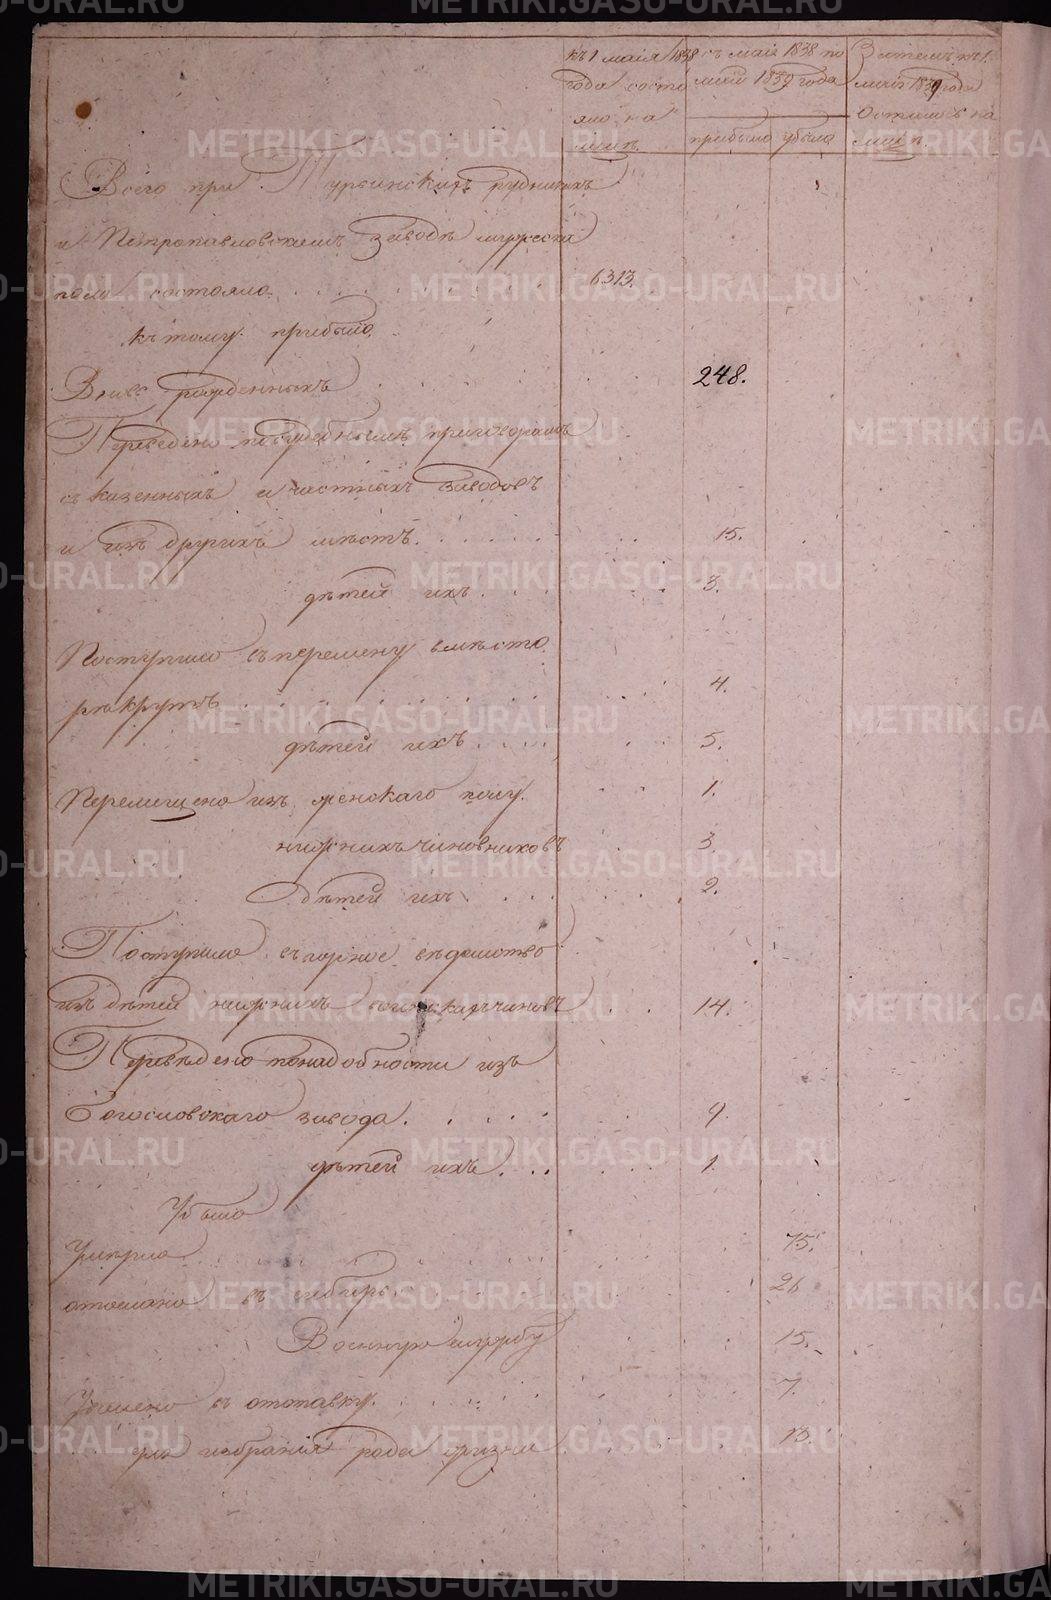 къ 1 маія 1838
года состо
яло на
лицо.
съ маія 1838 по
маій 1839 года
прибыло убыло
Затемъ къ 1.
маія 1839 года
Осталось на
лицо.
Всего при Турьинскихъ рудникахъ
и Петропавловскомъ заводѣ мужеска
пола состояло 6313.
къ тому прибыло.
Вновь рожденныхъ 248.
Переведено по судебнымъ приговорамъ
съ казенныхъ и частныхъ заводовъ
и изъ другихъ мѣстъ. 15.
дѣтей ихъ 3.
Поступило въ перемену вмѣсто
рѣкрутъ 4.
дѣтей ихъ 5.
Перемищено изъ женскаго полу. 1.
нижнихъ чиновниковъ 3.
дѣтей ихъ 2.
Поступило въ горное вѣдомство
изъ дѣтей нижнихъ воинскихъ чиновъ 14.
Перевѣдено по надобности изъ
Богословскаго завода. 9.
дѣтей ихъ. 1.
Убыло
Умерло 75.
отослано въ сибирь. 26
Военную службу 15.
Уволено въ отставку. 7.
для избранія рода жизни 13.
METRIKI.GASO-URAL.RU